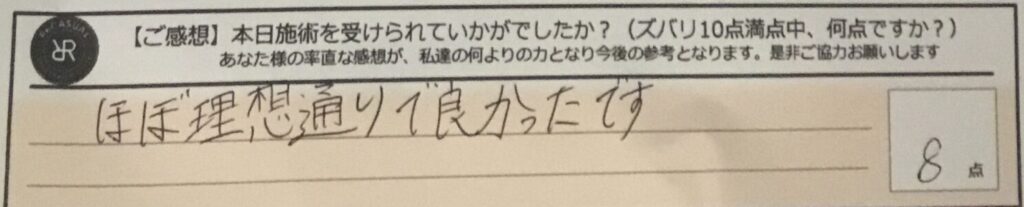 【ご感想】本日施術を受けられていかがでしたか？（ズバリ10点満点中、何点ですか？）
あなた様の率直な感想が、私達の何よりの力となり今後の参考となります。是非ご協力お願いします
ほぼ理想通りで良かったです
8点